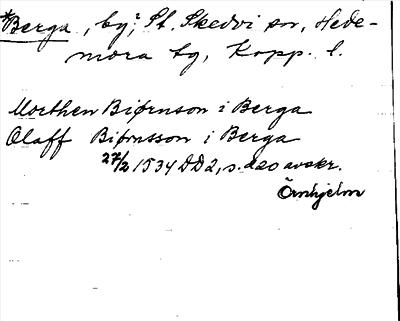 *Berga, by, St. Skedvi sn, Hede-
mora tg, Kopp. l.
Morthen Biørnson i Berga
Olaff Biørnsson i Berga
27/2 1534 DD2, s. 220 avskr.
Örnhjelm